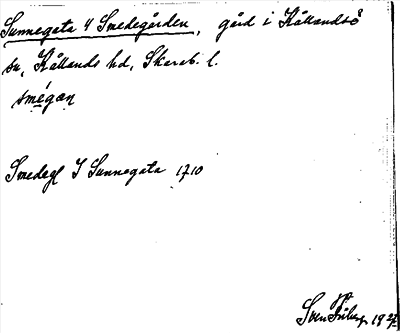 Sunnegata 4 Smedegården, gård i Kållandsö
sn, Kållands hd, Skarab. l.
smégan
Smedegl I Sunnegata 1710
Sven 1927